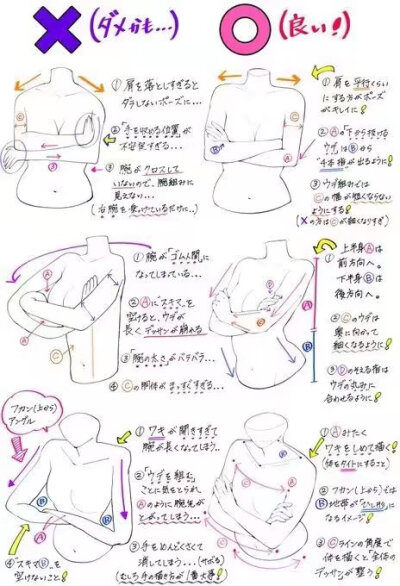 ✕(ダメかも…)
○(良い!)
①肩を落としすぎると
ダラしないポーズに…
②「手を収める位置」が
不安定すぎる…
③腕がクロスして
いないので、腕組みに
見えない…
(右腕を受けているだけに…)
①肩を平行くらい
にする方がポーズ
がキレイに!
②Ⓐの「下から抜ける
ウデ」はⒷから
"4本指"が出るように!
③ウデ組みでは
Ⓒの幅が短くならない
ようにする!
(Xの方はⒸが細くなりすぎ)
①腕が「ゴム人間」に
なってしまっている…
②Ⓐに「スキマ」を
空けると、ウデが
長くデッサンが崩れる
③「腕の太さ」がバラバラ…
④Ⓒの胴体がまっすぐすぎる…
①上半身Ⓐは
前方向へ。
下半身Ⓑは
後方向へ。
②Ⓒのウデは
奥に向かって
細くなるように!
③Ⓓのそえる指は
ウデの丸みに
合わせるように!
フカン(上から)
アングル
①ワキが開きすぎて
腕が長くなってしまう…
②「ウデを組む」
ことに気をとられ、
Ⓐのように腕先が
とがってしまう…
③手をめんどくさくて
消してしまう…(サボる)
(むしろ手の描き方が1番大事!)
④スキマⒷを
空けないこと!
①Ⓐみたく
ワキをしめて描く!
(体をタイトにすること)
②フカン(上から)では
Ⓑ地帯が「ひし形」に
なるイメージ!
③Ⓒラインの角度で
体を描くと「全体の
デッサンが整う」!